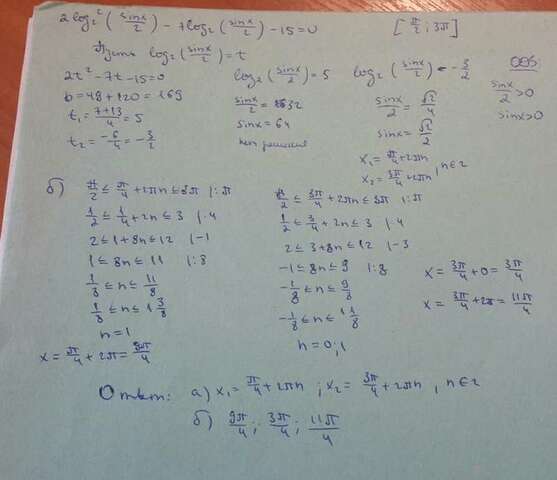 2log₂²(sinx/2) - 7log₂(sinx/2) - 15 = 0 [π/2; 3π]
Пусть log₂(sinx/2) = t
2t² - 7t - 15 = 0
D = 49 + 120 = 169
t₁ = (7+13)/4 = 5
t₂ = -6/4 = -3/2
log₂(sinx/2) = 5
sinx/2 = 32
sinx = 64
нет решений
log₂(sinx/2) = -3/2
sinx/2 = √2/4
sinx = √2/2
x₁ = π/4 + 2πn
x₂ = 3π/4 + 2πn, n∈z
ООБ:
sinx/2 > 0
sinx > 0
б) π/2 ≤ π/4 + 2πn ≤ 3π |:π
1/2 ≤ 1/4 + 2n ≤ 3 |·4
2 ≤ 1 + 8n ≤ 12 |-1
1 ≤ 8n ≤ 11 |:8
1/8 ≤ n ≤ 11/8
1/8 ≤ n ≤ 1 3/8
n = 1
x = π/4 + 2π = 9π/4
π/2 ≤ 3π/4 + 2πn ≤ 3π |:π
1/2 ≤ 3/4 + 2n ≤ 3 |·4
2 ≤ 3 + 8n ≤ 12 |-3
-1 ≤ 8n ≤ 9 |:8
-1/8 ≤ n ≤ 9/8
-1/8 ≤ n ≤ 1 1/8
n = 0,1
x = 3π/4 + 0 = 3π/4
x = 3π/4 + 2π = 11π/4
Ответ: а) x₁ = π/4 + 2πn ; x₂ = 3π/4 + 2πn, n∈z
б) 9π/4; 3π/4; 11π/4